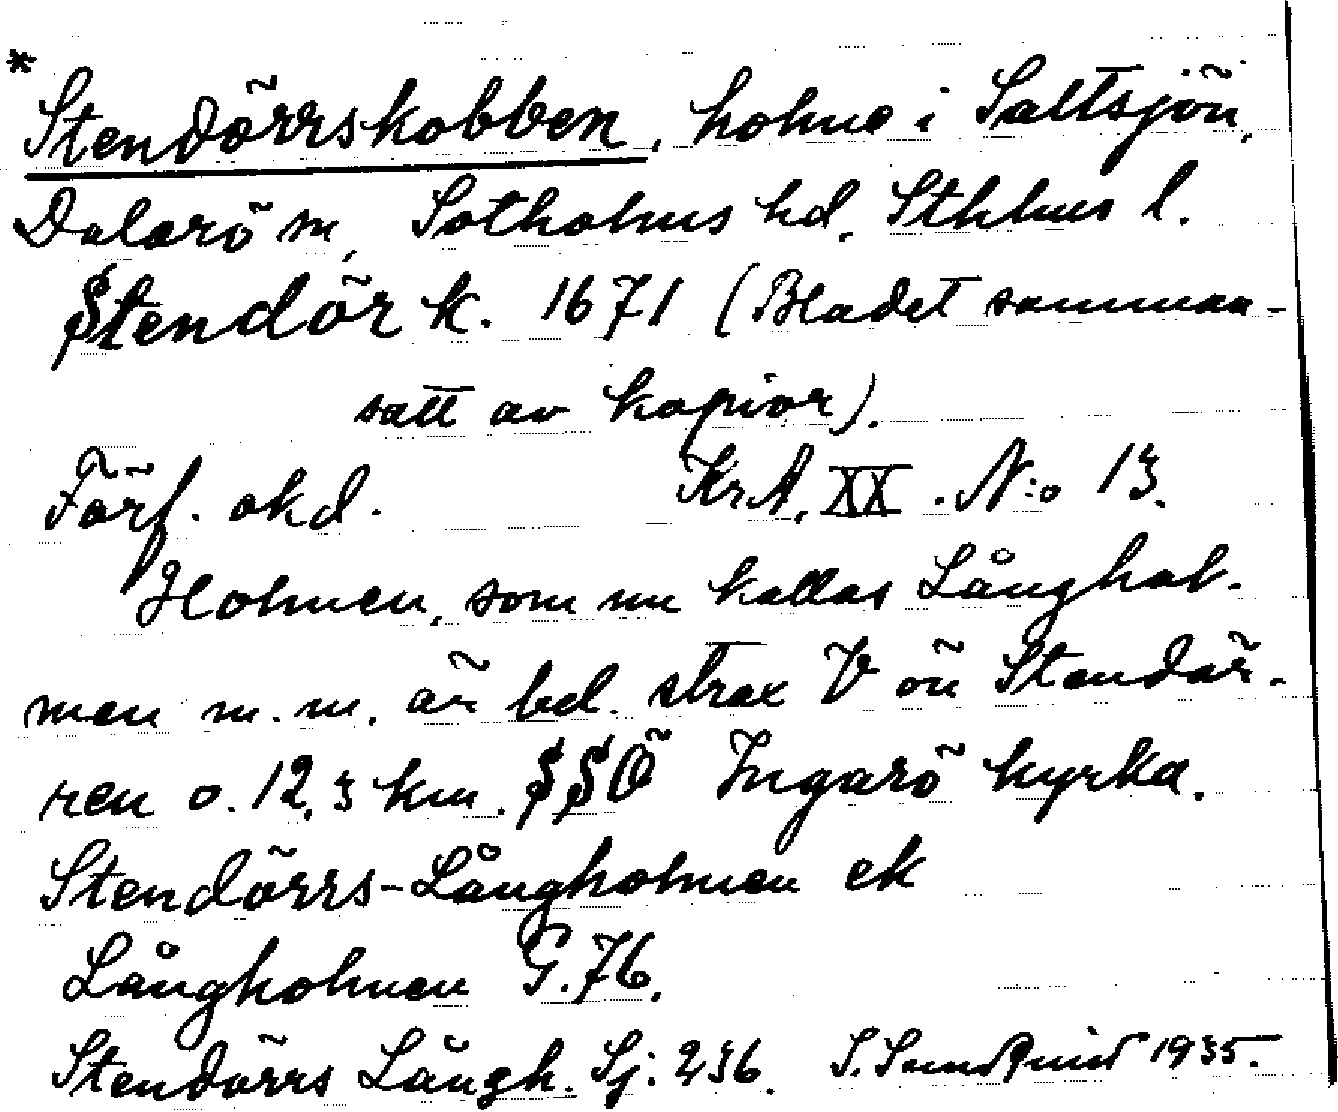 * Stendörrskobben, holme i Saltsjön,
Dalarö sn, Sotholms hd, Sthlms l.
Stendör k. 1671 (Bladet samman-
satt av kopior).
Förf. okd. KrA, XX. N:o 13.
Holmen, som nu kallas Långhol-
men m.m. är bel. strax V ön Stendör-
ren o. 12,3 km. SSÖ Ingarö kyrka.
Stendörrs-Långholmen ek
Långholmen G.76.
Stendörrs Långh. Sj. 236. S. Sundquist 1935.